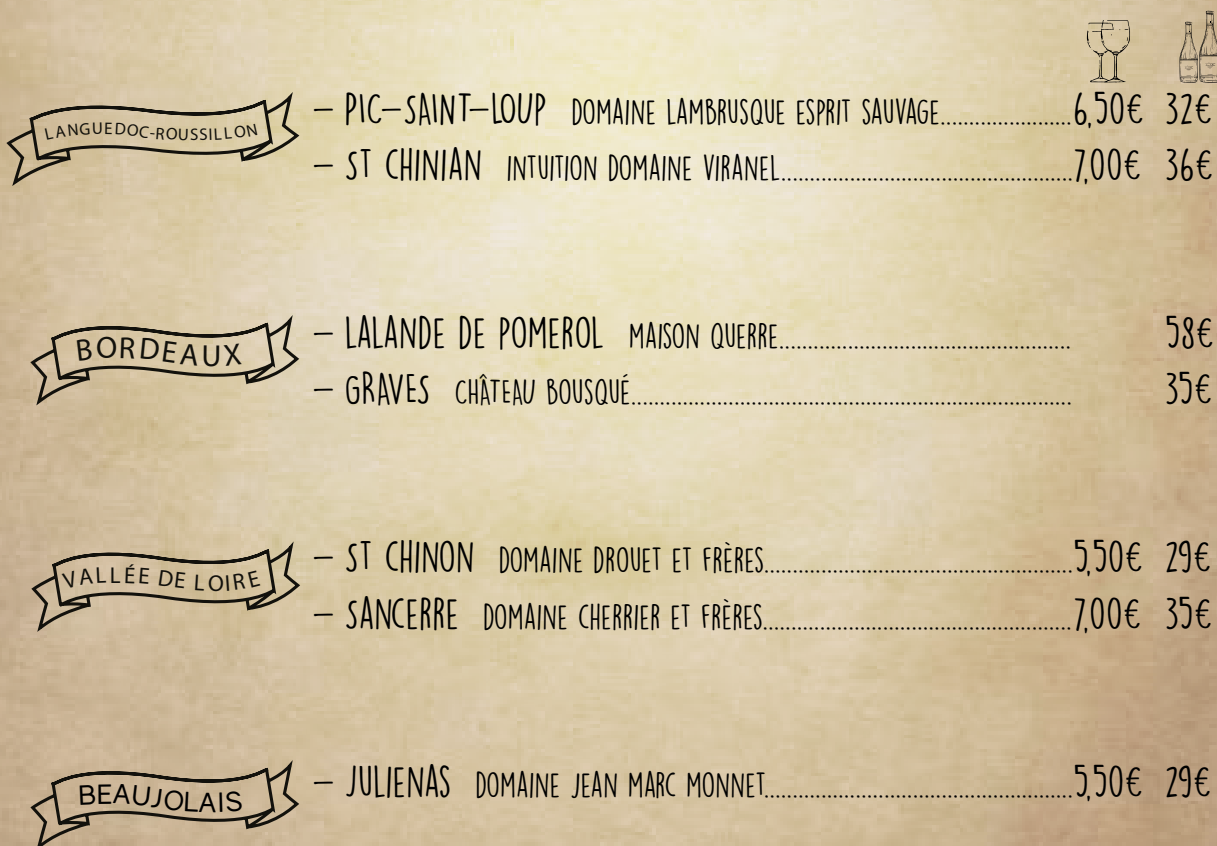 LANGUEDOC-ROUSSILLON
– PIC–SAINT–LOUP DOMAINE LAMBRUSQUE ESPRIT SAUVAGE......................6,50€ 32€
– ST CHINIAN INTUITION DOMAINE VIRANEL..................................................7,00€ 36€
BORDEAUX
– LALANDE DE POMEROL MAISON QUERRE.................................................. 58€
– GRAVES CHÂTEAU BOUSQUÉ........................................................................... 35€
VALLÉE DE LOIRE
– ST CHINON DOMAINE DROUET ET FRÈRES.....................................................5,50€ 29€
– SANCERRE DOMAINE CHERRIER ET FRÈRES.....................................................7,00€ 35€
BEAUJOLAIS
– JULIENAS DOMAINE JEAN MARC MONNET.....................................................5,50€ 29€